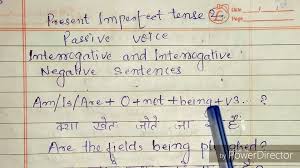 Present Imperfect tense
Passive voice
Interrogative and Interrogative
Negative Sentences
Am/Is/Are + O + not + being + v3 ... ?
क्या खेत जोते जा रहे हैं
Are the fields being ploughed?
PowerDirector